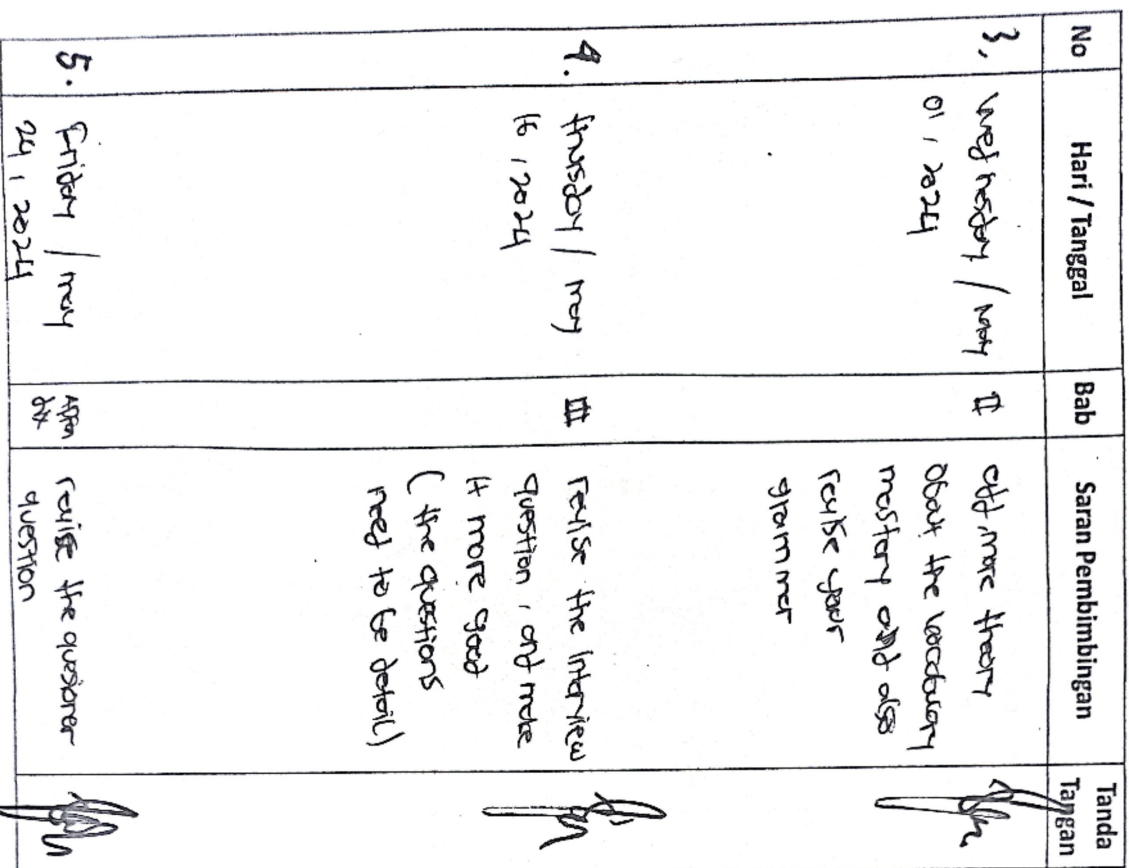 No Hari / Tanggal Bab Saran Pembimbingan Tanda Tangan
3. wednesday / may
01, 2024
II
add more theory
about the vocabulary
mastery and also
revise your
grammer
4. thursday / may
16, 2024
III
revise the interview
question, and make
it more good
(the questions
need to be detail)
5. Friday / may
24, 2024
revise the quesioner
question